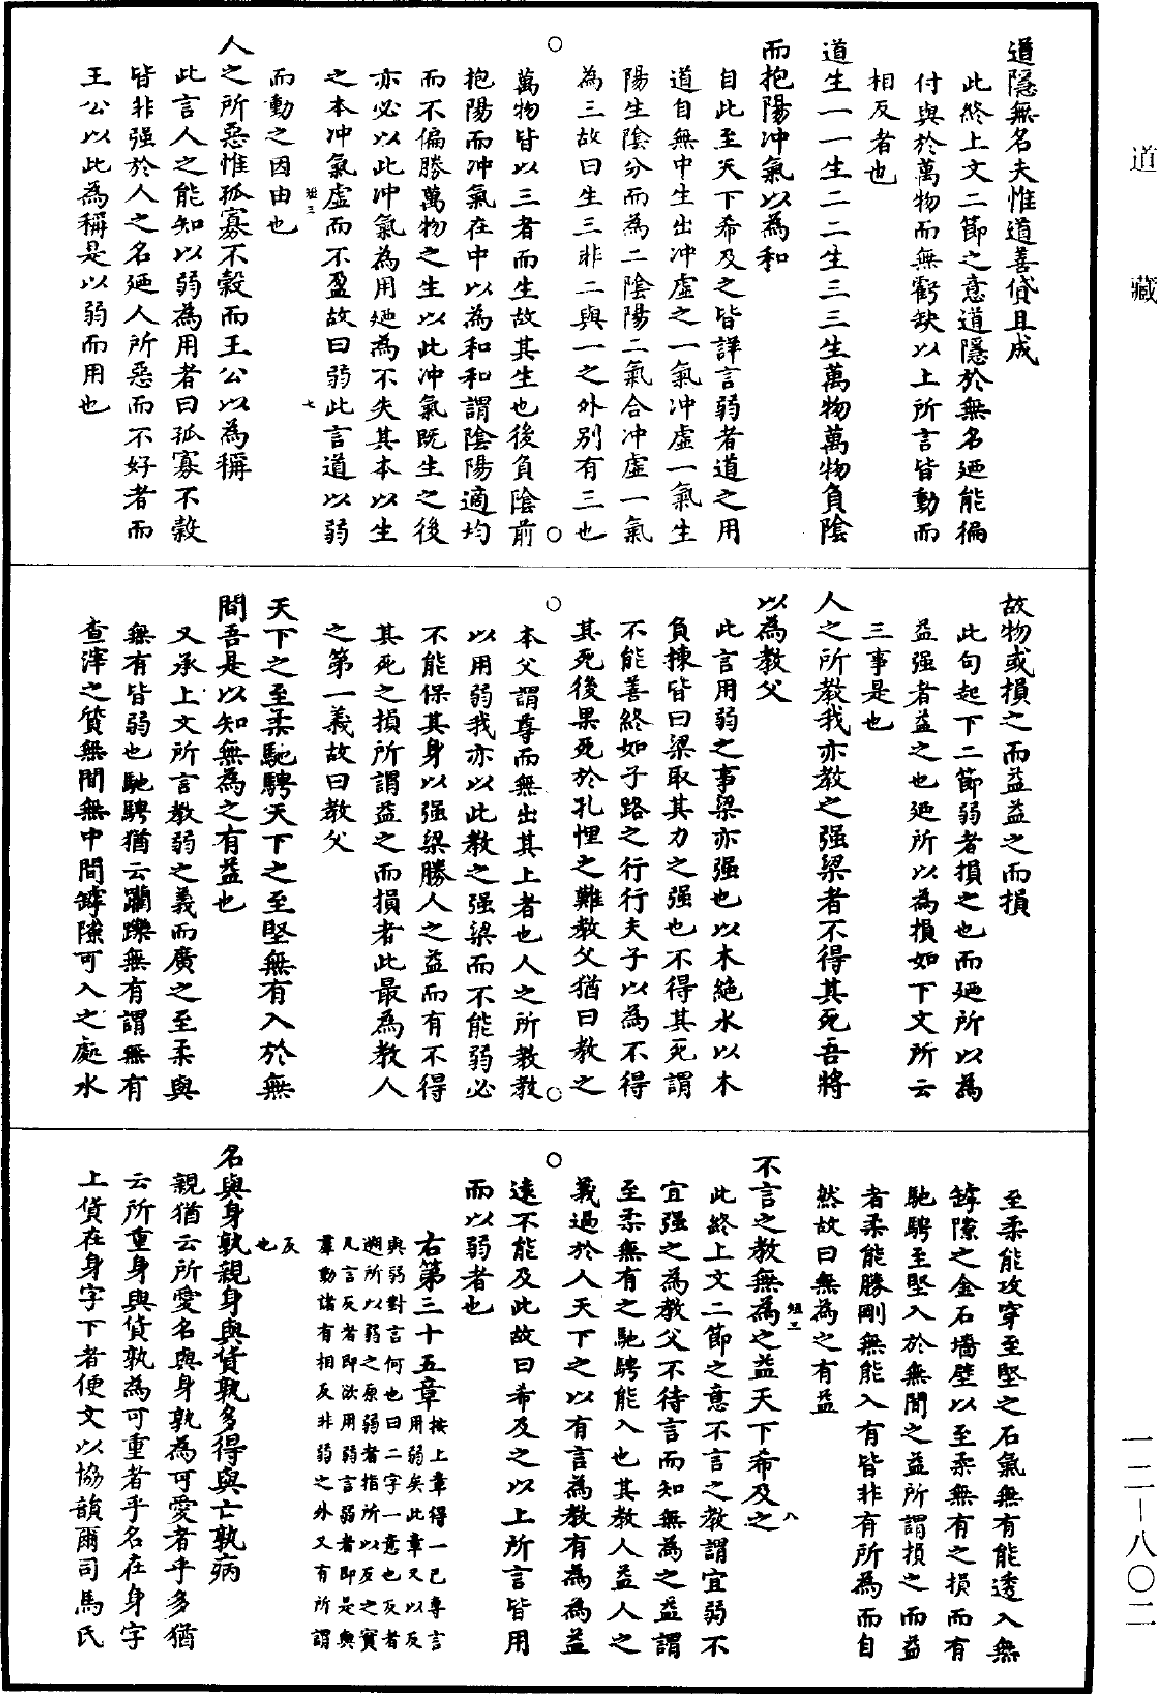 道隱無名夫惟道善貸且成
此終上文二節之意道隱於無名廼能徧
付與於萬物而無虧缺以上所言皆動而
相反者也
道生一一生二二生三三生萬物萬物負陰
而抱陽冲氣以為和
自此至天下希及之皆詳言弱者道之用
道自無中生出冲虛之一氣冲虛一氣生
陽生陰分而為二陰陽二氣合冲虛一氣
為三故曰生三非二與一之外別有三也
萬物皆以三者而生故其生也後負陰前
抱陽而冲氣在中以為和和謂陰陽適均
而不偏勝萬物之生以此冲氣既生之後
亦必以此冲氣為用廼為不失其本以生
之本冲氣虛而不盈故曰弱此言道以弱
短三 七
而動之因由也
人之所惡惟孤寡不穀而王公以為稱
此言人之能知以弱為用者曰孤寡不穀
皆非强於人之名廼人所惡而不好者而
王公以此為稱是以弱而用也
故物或損之而益益之而損
此句起下二節弱者損之也而廼所以為
益强者益之也廼所以為損如下文所云
三事是也
人之所教我亦教之强梁者不得其死吾將
以為教父
此言用弱之事梁亦强也以木絕水以木
負棟皆曰梁取其力之强也不得其死謂
不能善終如子路之行行夫子以為不得
其死後果死於孔悝之難教父猶曰教之
本父謂尊而無出其上者也人之所教教
以用弱我亦以此教之强梁而不能弱必
不能保其身以强梁勝人之益而有不得
其死之損所謂益之而損者此最為教人
之第一義故曰教父
天下之至柔馳騁天下之至堅無有入於無
間吾是以知無為之有益也
又承上文所言教弱之義而廣之至柔與
無有皆弱也馳騁猶云躪躒無有謂無有
查滓之質無間無中間罅隙可入之處水
至柔能攻穿至堅之石氣無有能透入無
罅隙之金石墻壁以至柔無有之損而有
馳騁至堅入於無間之益所謂損之而益
者柔能勝剛無能入有皆非有所為而自
然故曰無為之有益
短三 八
不言之教無為之益天下希及之
此終上文二節之意不言之教謂宜弱不
宜强之為教父不待言而知無為之益謂
至柔無有之馳騁能入也其教人益人之
義過於人天下之以有言為教有為為益
遠不能及此故曰希及之以上所言皆用
而以弱者也
右第三十五章按上章得一已專言
用弱矣此章又以反
與弱對言何也曰二字一意也反者
廼所以弱之原弱者指所以反之實
凡言反者即欲用弱言弱者即是與
羣動諸有相反非弱之外又有所謂
反
也
名與身孰親身與貨孰多得與亡孰病
親猶云所愛名與身孰為可愛者乎多猶
云所重身與貨孰為可重者乎名在身字
上貨在身字下者便文以協韻爾司馬氏
道 藏
一二—八〇二